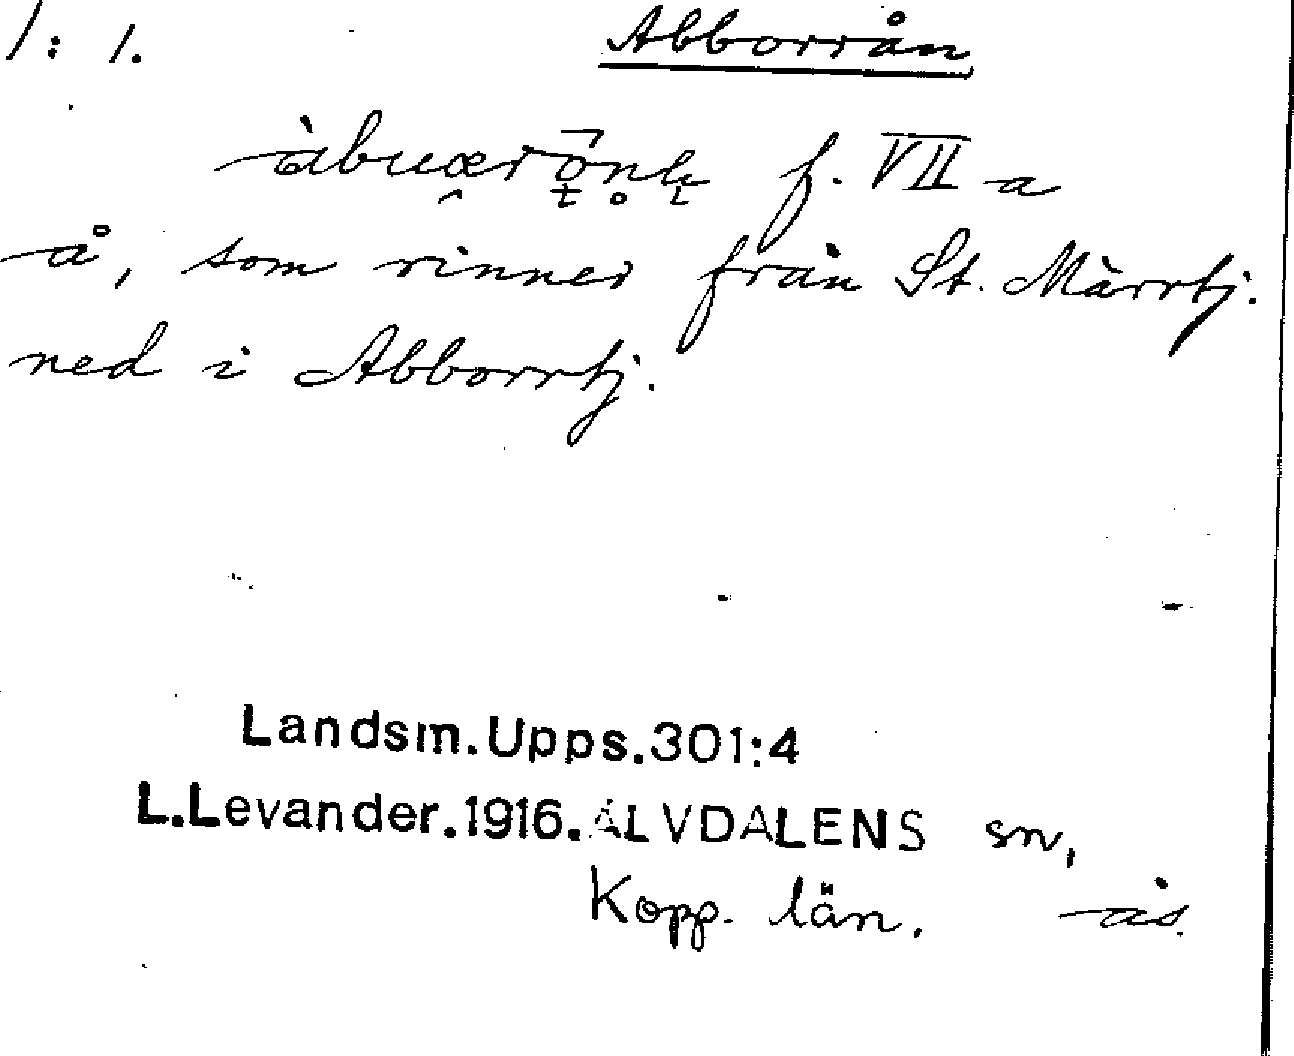 1:1. Abborrån
f. VII a
å, som rinner från St. Märrtj.
ned i Abborrtj.
Landsm.Upps.301:4
L.Levander.1916.ÄLVDALENS sn,
Kopp. län. ås.